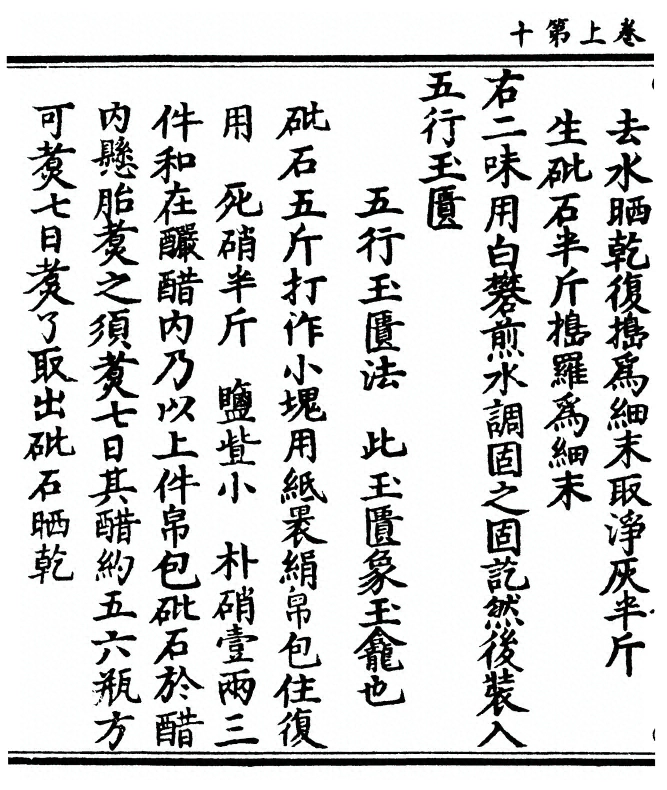 卷上第十
去水晒乾復搗爲細末取淨灰半斤
生砒石半斤搗羅爲細末
右二味用白礬煎水調固之固訖然後裝入
五行玉匱
五行玉匱法 此玉匱象玉龕也
砒石五斤打作小塊用紙褁絹帛包住復
用 死硝半斤 鹽些小 朴硝壹兩三
件和在釅醋内乃以上件帛包砒石於醋
内懸胎煑之須煑七日其醋約五六瓶方
可煑七日煑了取出砒石晒乾